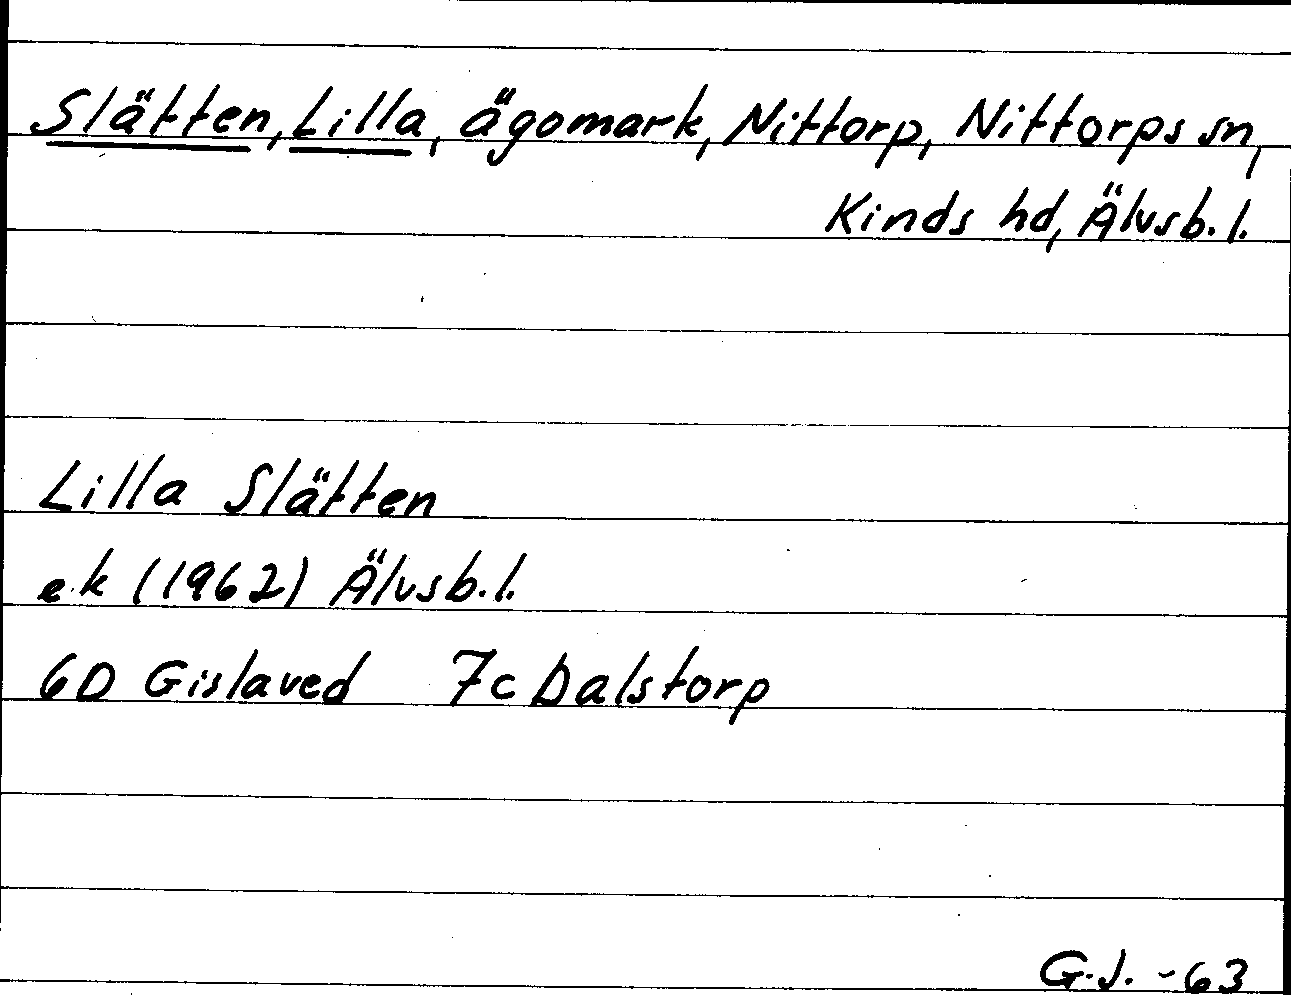 Slätten, Lilla, ägomark, Nittorp, Nittorps sn,
Kinds hd, Älvsb. l.
Lilla Slätten
ek (1962) Älvsb. l.
6D Gislaved 7c Dalstorp
G.J. -63